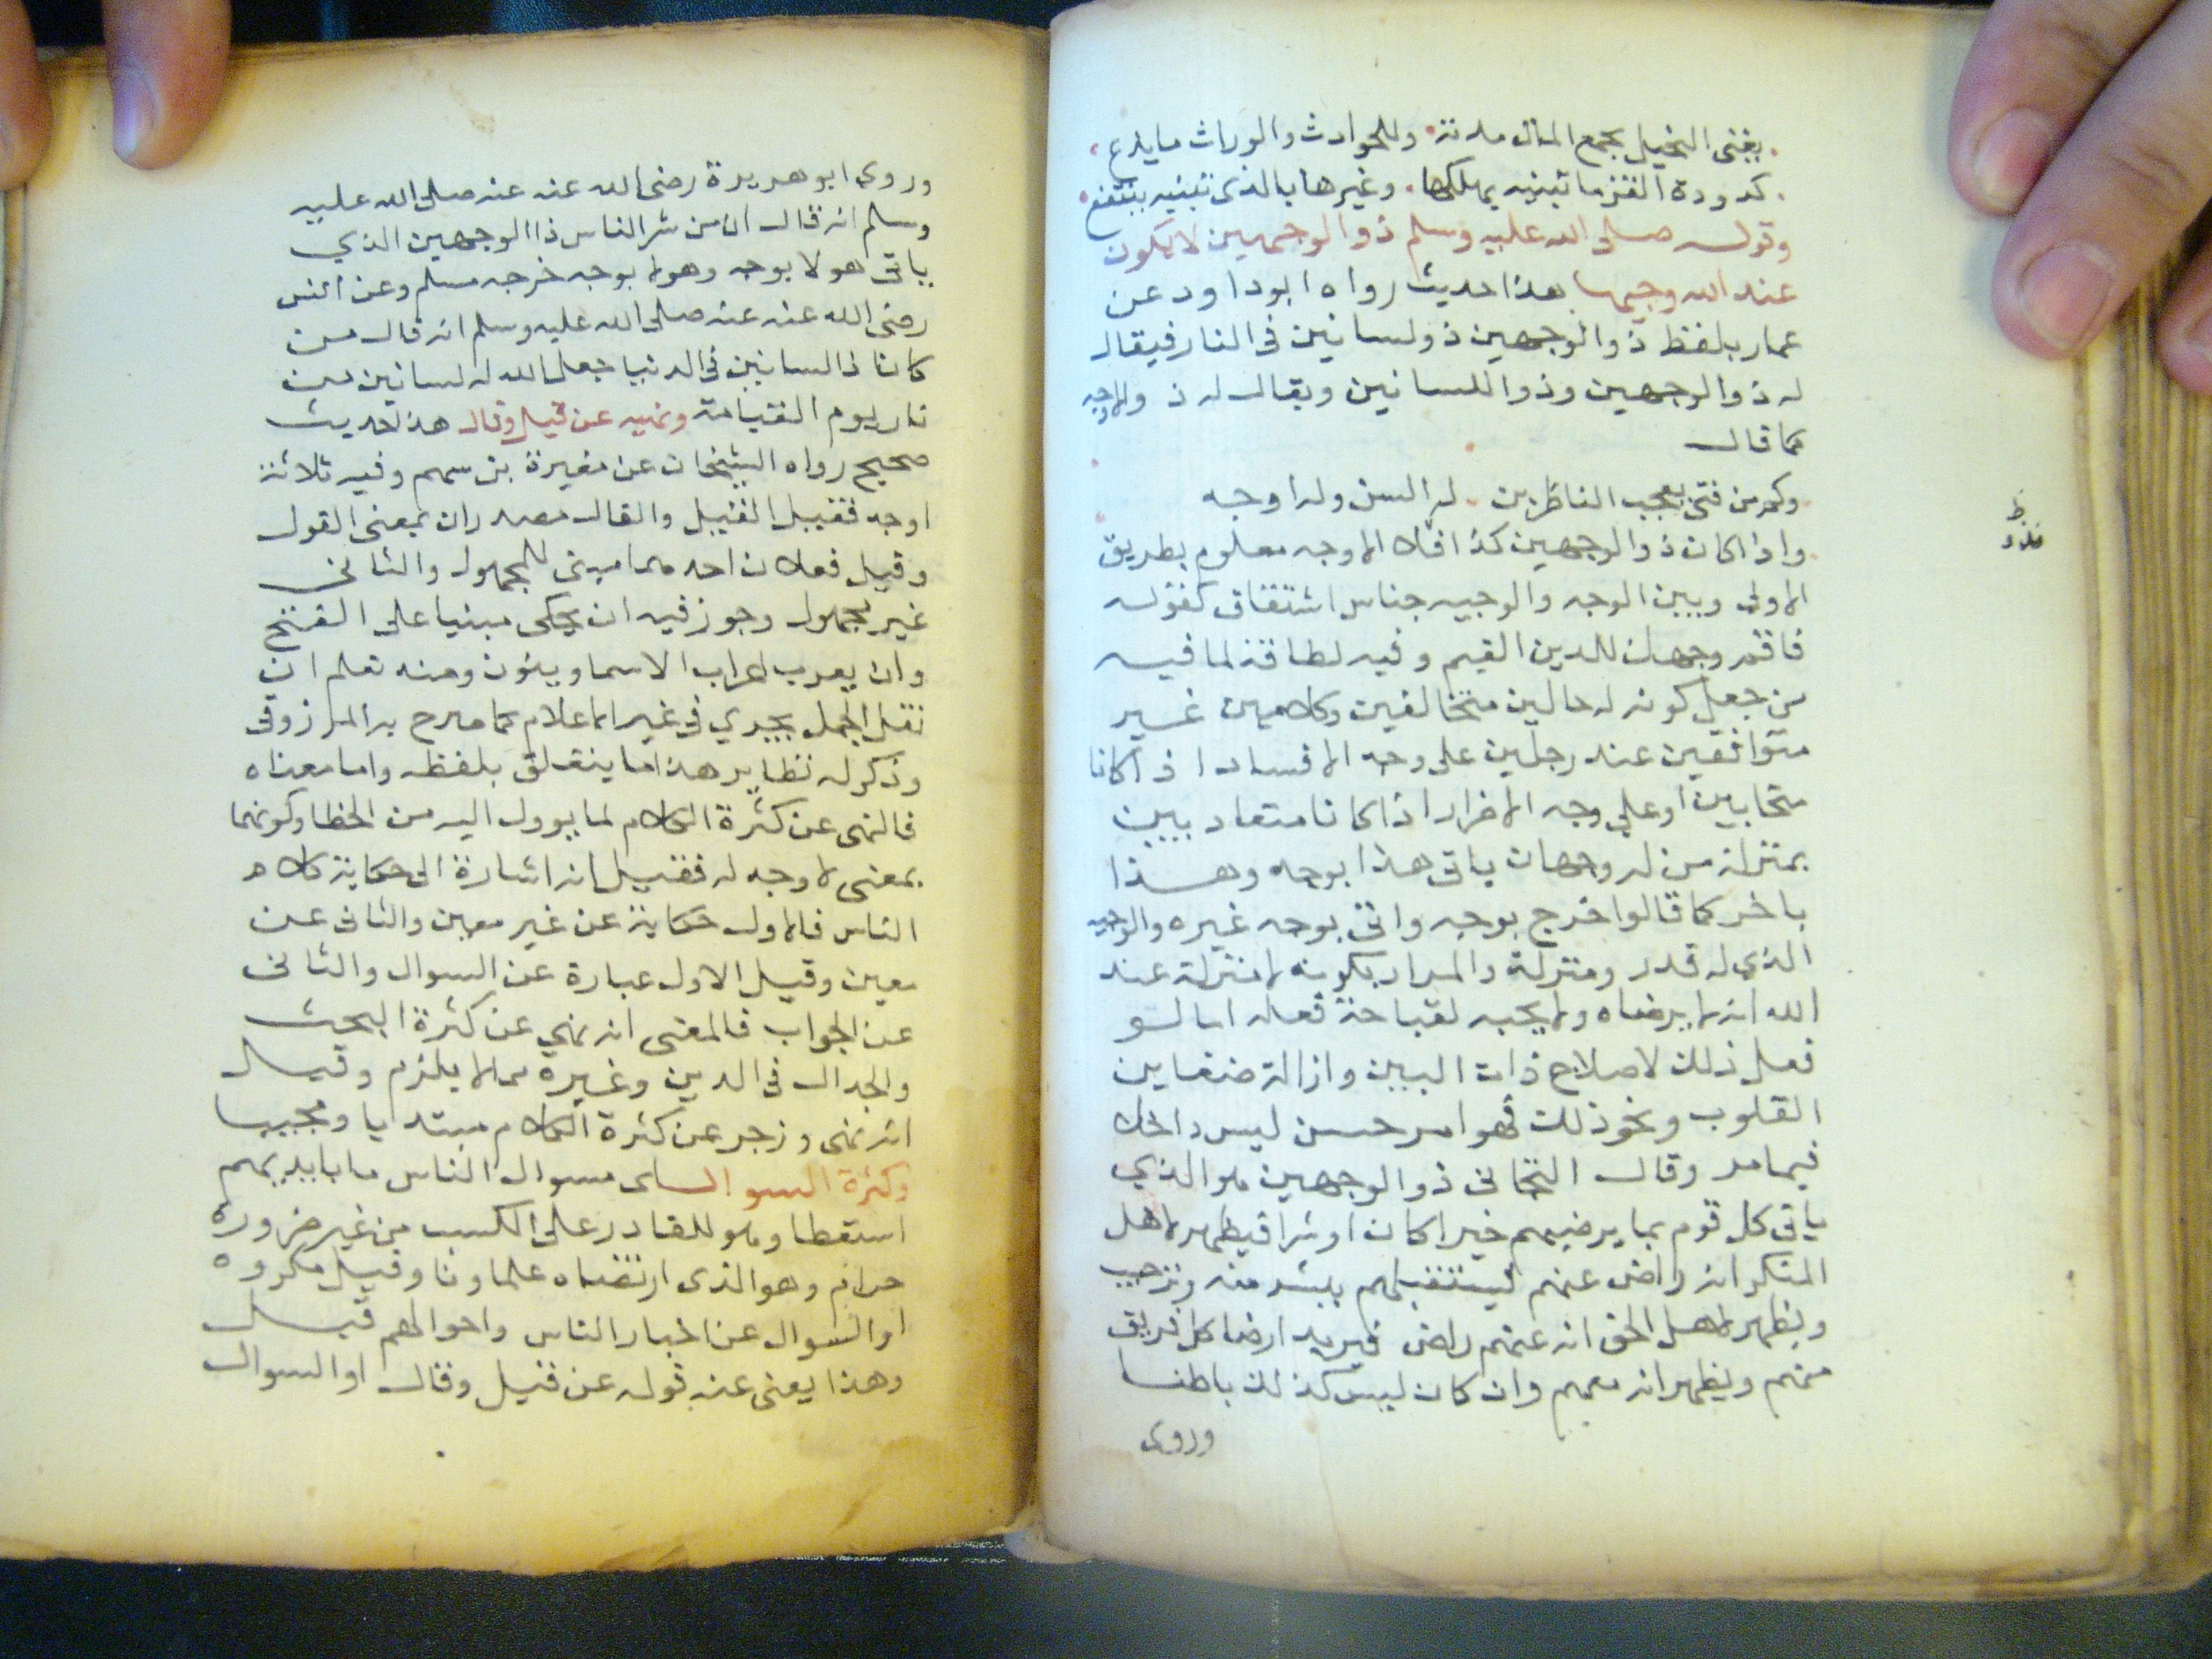 . يفنى البخيل بجمع المال مدته . وللحوادث والوراث ما يدع .
. كدودة القز ما تبنيه يهلكها . وغيرها بالذي تبنيه ينتفع .
وقوله صلى الله عليه وسلم ذو الوجهين لا يكون
عند الله وجيها هذا حديث رواه ابو داود عن
عمار بلفظ ذو الوجهين ذو لسانين في النار فيقال
له ذو الوجهين وذو اللسانين ويقال له ذو الاوجه
كما قال
. وكم من فتى يعجب الناظرين . له السن وله اوجه
واذا كان ذو الوجهين كذا فذو الاوجه معلوم بطريق
الاولى وبين الوجه والوجيه جناس اشتقاق كقوله
فاقم وجهك للدين القيم وفيه لطافة لما فيه
من جعل كونه له حالين متخالفين وكلامين غير
متوافقين عند رجلين على وجه الافساد اذا كانا
متحابين او على وجه الاضرار اذا كانا متعاديين
بمنزلة من له وجهان ياتى هذا بوجه وهذا
باخر كما قالوا خرج بوجه واتى بوجه غيره والوجيه
الذي له قدر ومنزلة والمراد بكونه لا منزلة عند
الله انه لا يرضاه ولا يحبه لقباحة فعله اما لو
فعل ذلك لاصلاح ذات البين وازالة ضغاين
القلوب ونحو ذلك فهو امر حسن ليس داخلا
فيما مر وقال التجانى ذو الوجهين هو الذي
ياتى كل قوم بما يرضيهم خيرا كان او شرا فيظهر لاهل
المنكر انه راض عنهم فيستقبلهم ببشر منه وترحيب
ويظهر لاهل الحق انه عنهم راض فيريد ارضا كل فريق
منهم ويظهر انه معهم وان كان ليس كذلك باطنا
وروى
وروي ابو هريرة رضى الله عنه عنه صلى الله عليه
وسلم انه قال ان من شر الناس ذا الوجهين الذي
ياتى هولا بوجه وهولا بوجه خرجه مسلم وعن انس
رضى الله عنه عنه صلى الله عليه وسلم انه قال من
كان ذا لسانين في الدنيا جعل الله له لسانين من
نار يوم القيامة ونهيه عن قيل وقال هذا حديث
صحيح رواه الشيخان عن مغيرة بن سهم وفيه ثلاثة
اوجه فقيل القيل والقال مصدران بمعنى القول
وقيل فعلان احدهما مبنى للمجهول والثانى
غير مجهول وجوز فيه ان يحكى مبنيا على الفتح
وان يعرب اعراب الاسما وينون ومنه تعلم ان
نقل الجمل يجري في غير الاعلام كما صرح به المرزوقى
وذكر له نظاير هذا ما يتعلق بلفظه واما معناه
فالنهى عن كثرة الكلام لما يوول اليه من الخطا وكونهما
بمعنى لا وجه له فقيل انه اشارة الى حكاية كلام
الناس فالاول حكاية عن غير معين والثانى عن
معين وقيل الاول عبارة عن السوال والثانى
عن الجواب فالمعنى انه نهي عن كثرة البحث
والجدال في الدين وغيره مما لا يلزم وقيل
انه نهى وزجر عن كثرة الكلام مبتديا ومجيبا
وكثرة السوال اى سوال الناس ما بايديهم
استعطا وهو للقادر على الكسب من غير ضرورة
حرام وهو الذى ارتضاه علماونا وقيل مكروه
او السوال عن اخبار الناس واحوالهم قيل
وهذا يغنى عنه قوله عن قيل وقال او السوال